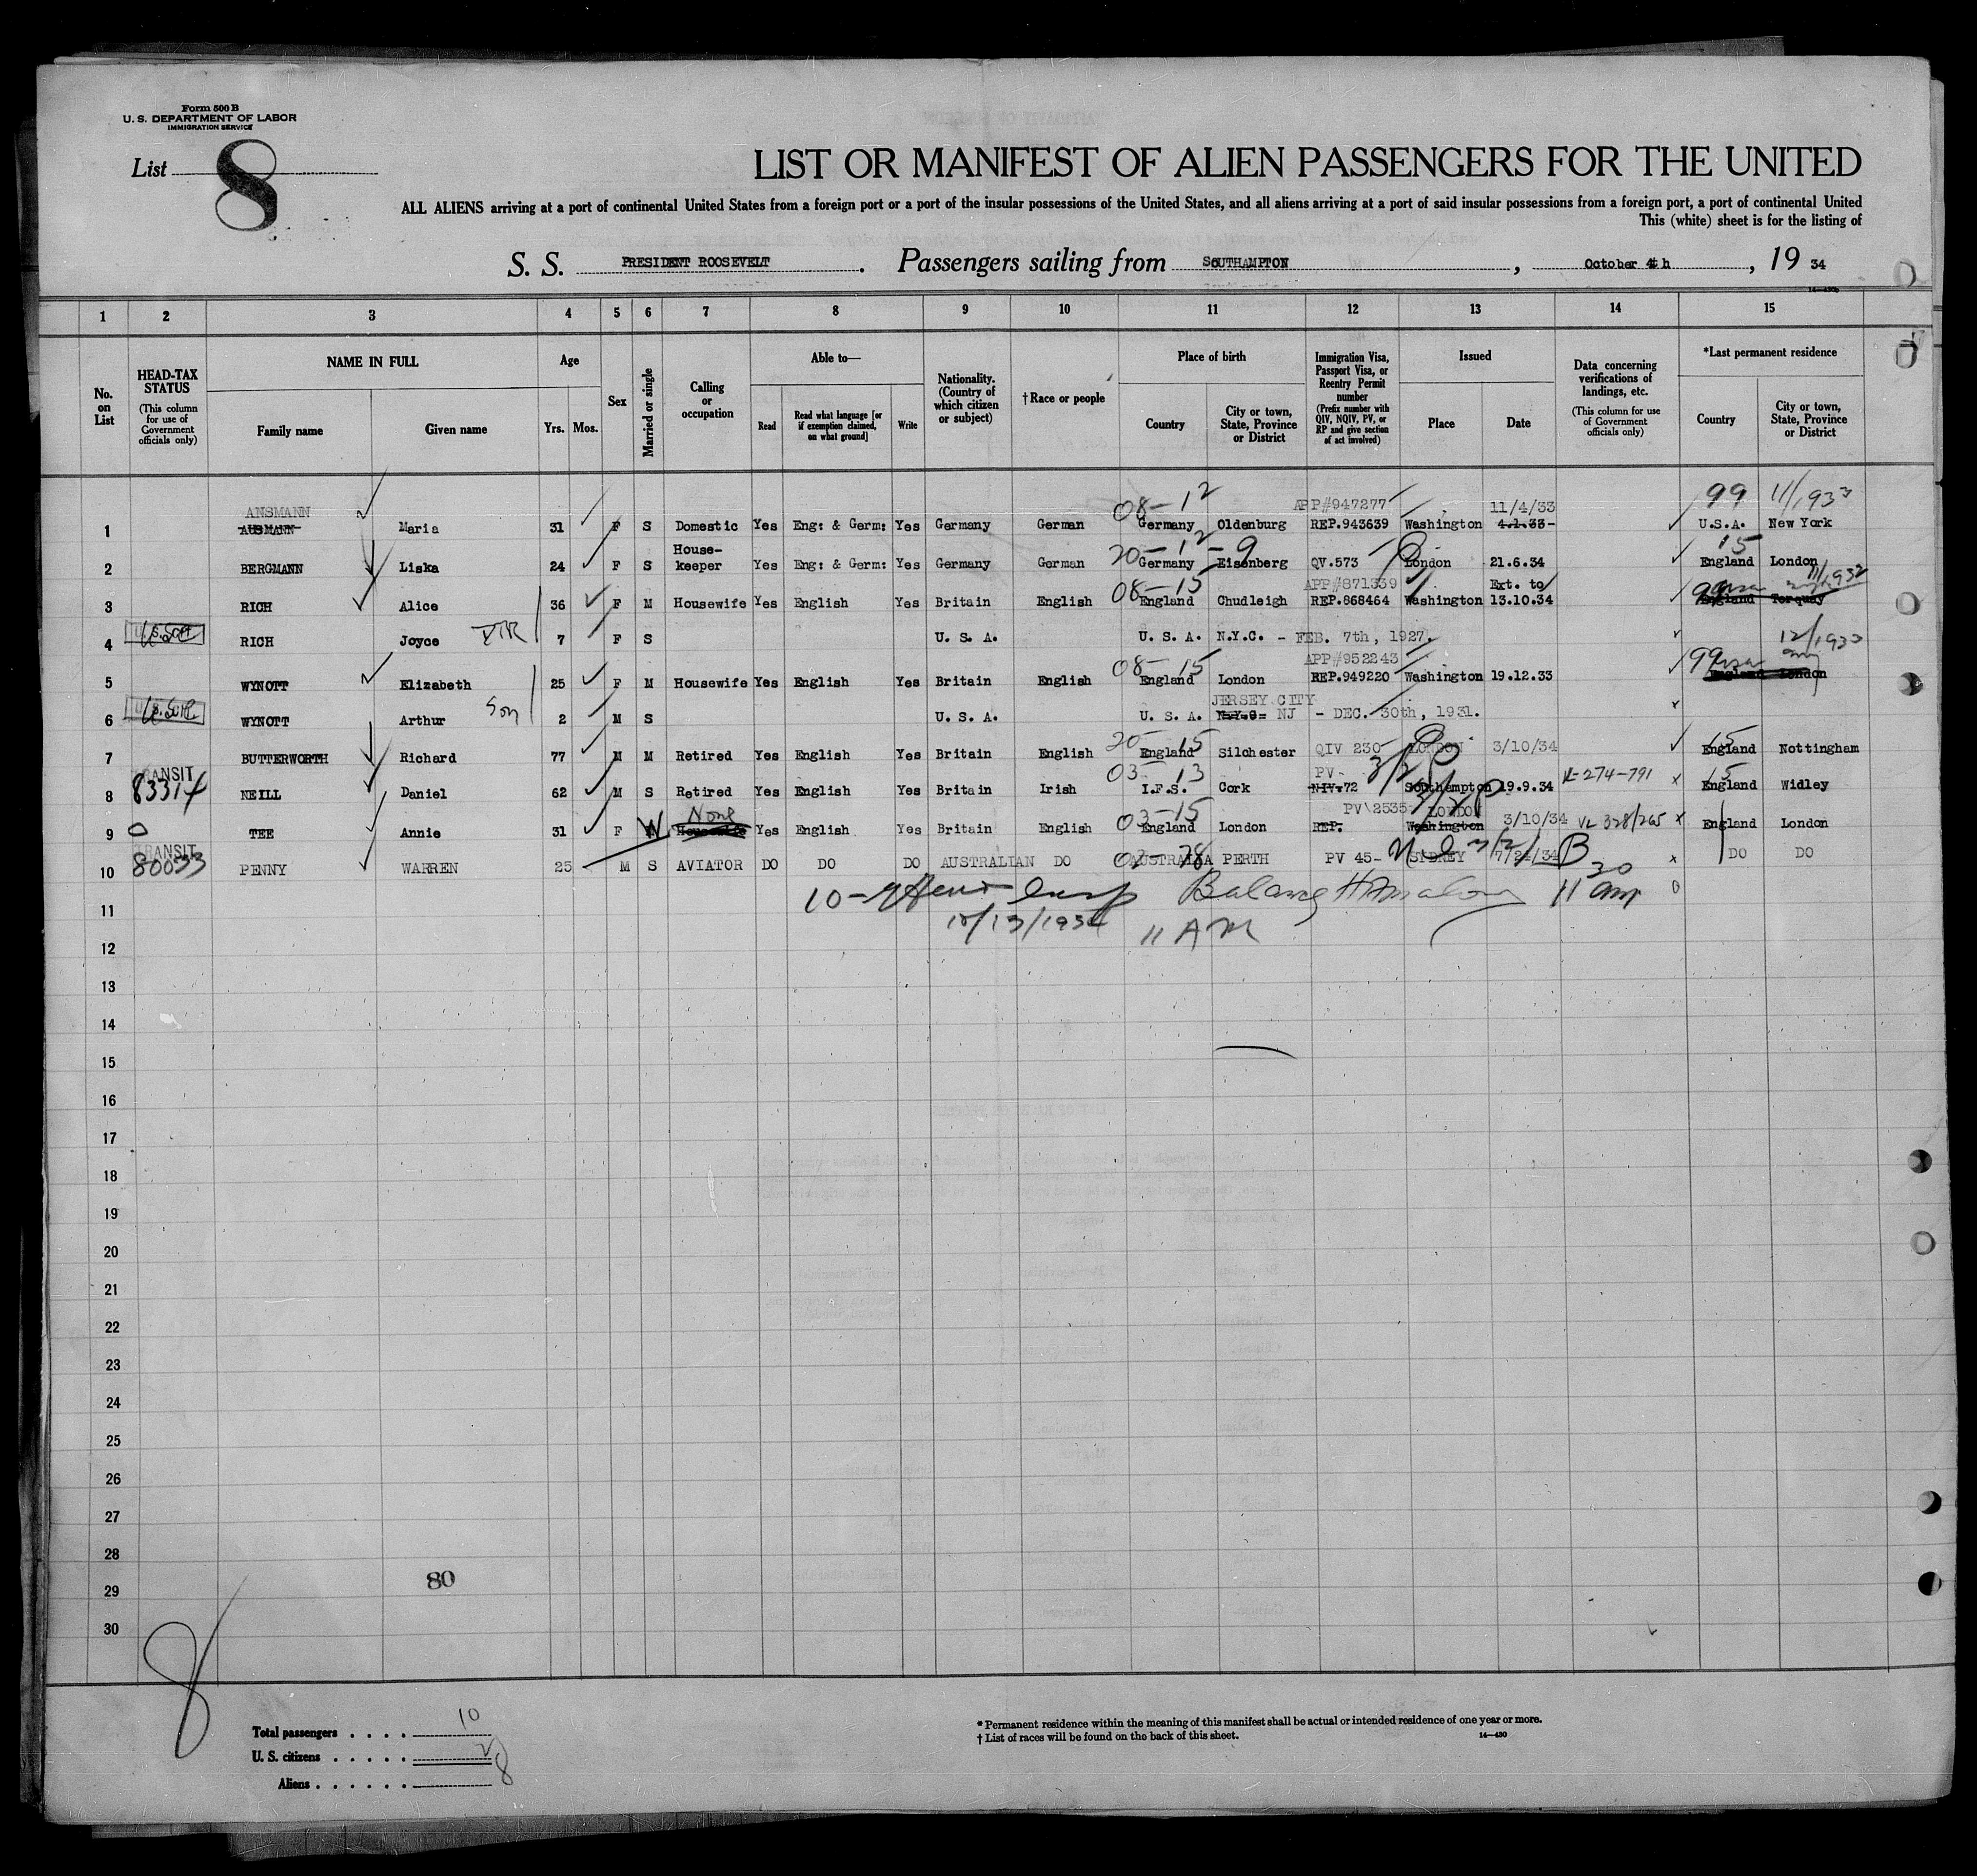 Form 500 B
U. S. DEPARTMENT OF LABOR
IMMIGRATION SERVICE
List 8
LIST OR MANIFEST OF ALIEN PASSENGERS FOR THE UNITED
ALL ALIENS arriving at a port of continental United States from a foreign port or a port of the insular possessions of the United States, and all aliens arriving at a port of said insular possessions from a foreign port, a port of continental United
This (white) sheet is for the listing of
S. S. PRESIDENT ROOSEVELT. Passengers sailing from SOUTHAMPTON, October 4th, 19 34
1 2 3 4 5 6 7 8 9 10 11 12 13 14 15
No. on List
HEAD-TAX STATUS (This column for use of Government officials only)
NAME IN FULL
Family name Given name
Age
Yrs. Mos.
Sex
Married or single
Calling or occupation
Able to—
Read
Read what language [or if exemption claimed, on what ground]
Write
Nationality. (Country of which citizen or subject)
†Race or people
Place of birth
Country
City or town, State, Province or District
Immigration Visa, Passport Visa, or Reentry Permit number (Prefix number with QIV, NQIV, PV, or RP and give section of act involved)
Issued
Place Date
Data concerning verifications of landings, etc. (This column for use of Government officials only)
*Last permanent residence
Country
City or town, State, Province or District
ANSMANN 08-12 APP#947277 11/4/33 99 11/1933
1 AUSMANN Maria 31 F S Domestic Yes Eng: & Germ: Yes Germany German Germany Oldenburg REP.943639 Washington 4.1.33- U.S.A. New York
House- 20-12-9 15
2 BERGMANN Liska 24 F S keeper Yes Eng: & Germ: Yes Germany German Germany Eisenberg QV.573 London 21.6.34 England London
08-15 APP#871339 Ext. to 99 11/1932
3 RICH Alice 36 F M Housewife Yes English Yes Britain English England Chudleigh REP.868464 Washington 13.10.34 England Torquay
4 RICH Joyce 7 F S U. S. A. U. S. A. N.Y.C. - FEB. 7th, 1927. 12/1933
08-15 APP#952243 99
5 WYNOTT Elizabeth 25 F M Housewife Yes English Yes Britain English England London REP.949220 Washington 19.12.33 England London
JERSEY CITY
6 WYNOTT Arthur Son 2 M S U. S. A. U. S. A. N.Y.C. NJ - DEC. 30th, 1931.
20-15 15
7 BUTTERWORTH Richard 77 M M Retired Yes English Yes Britain English England Silchester QIV 230 LONDON 3/10/34 England Nottingham
TRANSIT 03-13 PV- 15
8 83314 NEILL Daniel 62 M S Retired Yes English Yes Britain Irish I.F.S. Cork NIV.72 Southampton 19.9.34 VL-274-791 England Widley
None 03-15 PV 2535 LONDON
9 0 TEE Annie 31 F W Housewife Yes English Yes Britain English England London REP. Washington 3/10/34 VL 328/265 England London
TRANSIT
10 80033 PENNY WARREN 25 M S AVIATOR DO DO DO AUSTRALIAN DO AUSTRALIA PERTH PV 45- SIDNEY 7/24/34 DO DO
11
10/13/1934 11 AM
12
13
14
15
16
17
18
19
20
21
22
23
24
25
26
27
28
80
29
30
8
Total passengers . . . . 10
U. S. citizens . . . . . 2
Aliens . . . . . . 8
* Permanent residence within the meaning of this manifest shall be actual or intended residence of one year or more.
† List of races will be found on the back of this sheet. 14—430